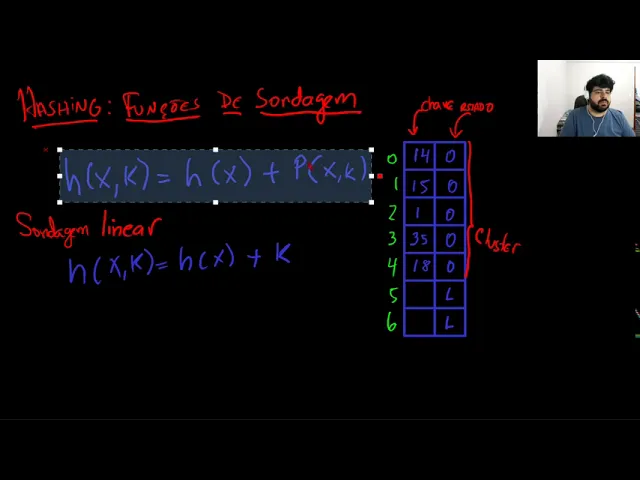 HASHING: FUNÇÕES DE SONDAGEM
h(x,k) = h(x) + P(x,k)
Sondagem linear
h(x,k) = h(x) + k
chave ESTADO
0 14 0
1 15 0
2 1 0
3 35 0
4 18 0
5 L
6 L
Cluster